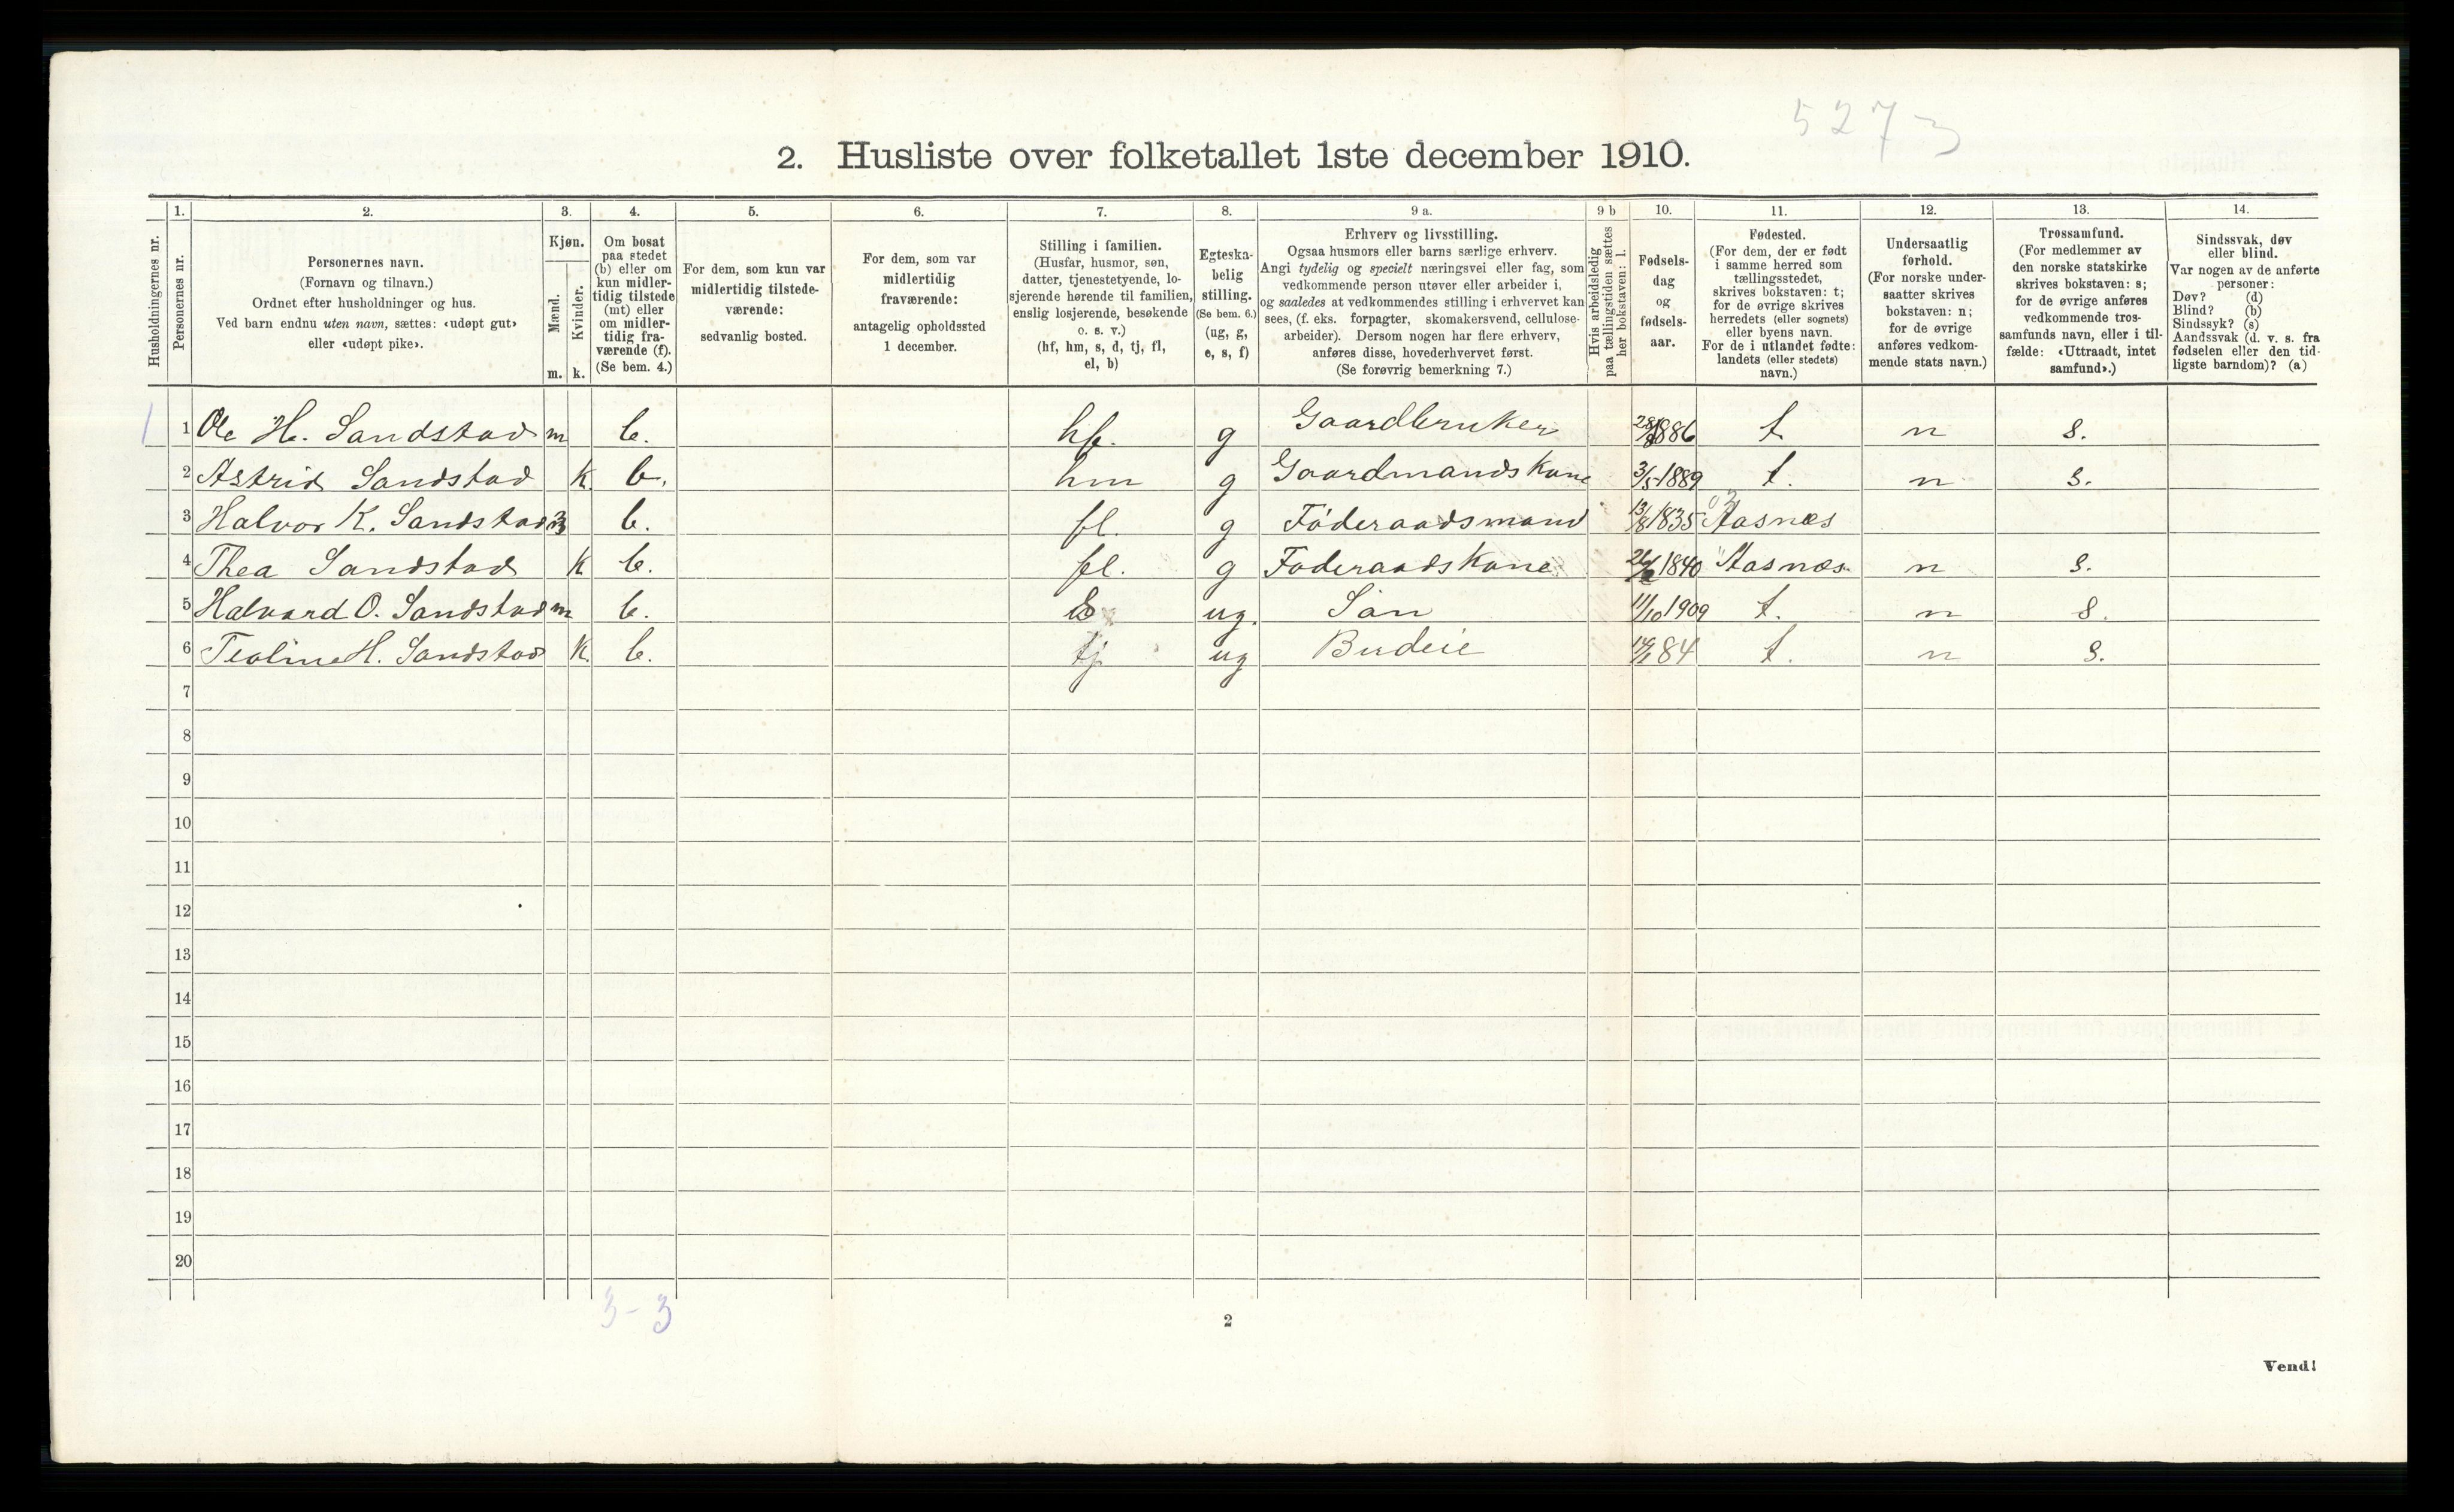 5273
2. Husliste over folketallet 1ste december 1910.
Husholdningernes nr.
1.
Personernes nr.
2.
Personernes navn.
(Fornavn og tilnavn.)
Ordnet efter husholdninger og hus.
Ved barn endnu uten navn, sættes: «udøpt gut»
eller «udøpt pike».
3.
Kjøn.
Mænd.
Kvinder.
m. k.
4.
Om bosat
paa stedet
(b) eller om
kun midler-
tidig tilstede
(mt) eller
om midler-
tidig fra-
værende (f).
(Se bem. 4.)
5.
For dem, som kun var
midlertidig tilstede-
værende:
sedvanlig bosted.
6.
For dem, som var
midlertidig
fraværende:
antagelig opholdssted
1 december.
7.
Stilling i familien.
(Husfar, husmor, søn,
datter, tjenestetyende, lo-
sjerende hørende til familien,
enslig losjerende, besøkende
o. s. v.)
(hf, hm, s, d, tj, fl,
el, b)
8.
Egteska-
belig
stilling.
(Se bem. 6.)
(ug, g,
e, s, f)
9 a.
Erhverv og livsstilling.
Ogsaa husmors eller barns særlige erhverv.
Angi tydelig og specielt næringsvei eller fag, som
vedkommende person utøver eller arbeider i,
og saaledes at vedkommendes stilling i erhvervet kan
sees, (f. eks. forpagter, skomakersvend, cellulose-
arbeider). Dersom nogen har flere erhverv,
anføres disse, hovederhvervet først.
(Se forøvrig bemerkning 7.)
9 b
Hvis arbeidsledig
paa tællingstiden sættes
her bokstaven: l.
10.
Fødsels-
dag
og
fødsels-
aar.
11.
Fødested.
(For dem, der er født
i samme herred som
tællingsstedet,
skrives bokstaven: t;
for de øvrige skrives
herredets (eller sognets)
eller byens navn.
For de i utlandet fødte:
landets (eller stedets)
navn.)
12.
Undersaatlig
forhold.
(For norske under-
saatter skrives
bokstaven: n;
for de øvrige
anføres vedkom-
mende stats navn.)
13.
Trossamfund.
(For medlemmer av
den norske statskirke
skrives bokstaven: s;
for de øvrige anføres
vedkommende tros-
samfunds navn, eller i til-
fælde: «Uttraadt, intet
samfund».)
14.
Sindssvak, døv
eller blind.
Var nogen av de anførte
personer:
Døv? (d)
Blind? (b)
Sindssyk? (s)
Aandssvak (d. v. s. fra
fødselen eller den tid-
ligste barndom)? (a)
1 1 Ole H. Sandstad m b. hf. g Gaardbruker 1886 t n s.
2 Astrid Sandstad K. b. hm g Gaardmandskone 3/5 1889 t. n s.
3 Halvor K. Sandstad m b. fl. g Føderaadsmand 13/8 1835 Aasnes
4 Thea Sandstad K b. fl. g Foderaadskone 1840 Aasnæs n s.
5 Halvard O. Sandstad m b. S ug. Sön 11/10 1909 t. n s.
6 Teoline H. Sandstad K. b. tj ug Budeie 84 t. n s.
7
8
9
10
11
12
13
14
15
16
17
18
19
20
3-3
2
Vend!